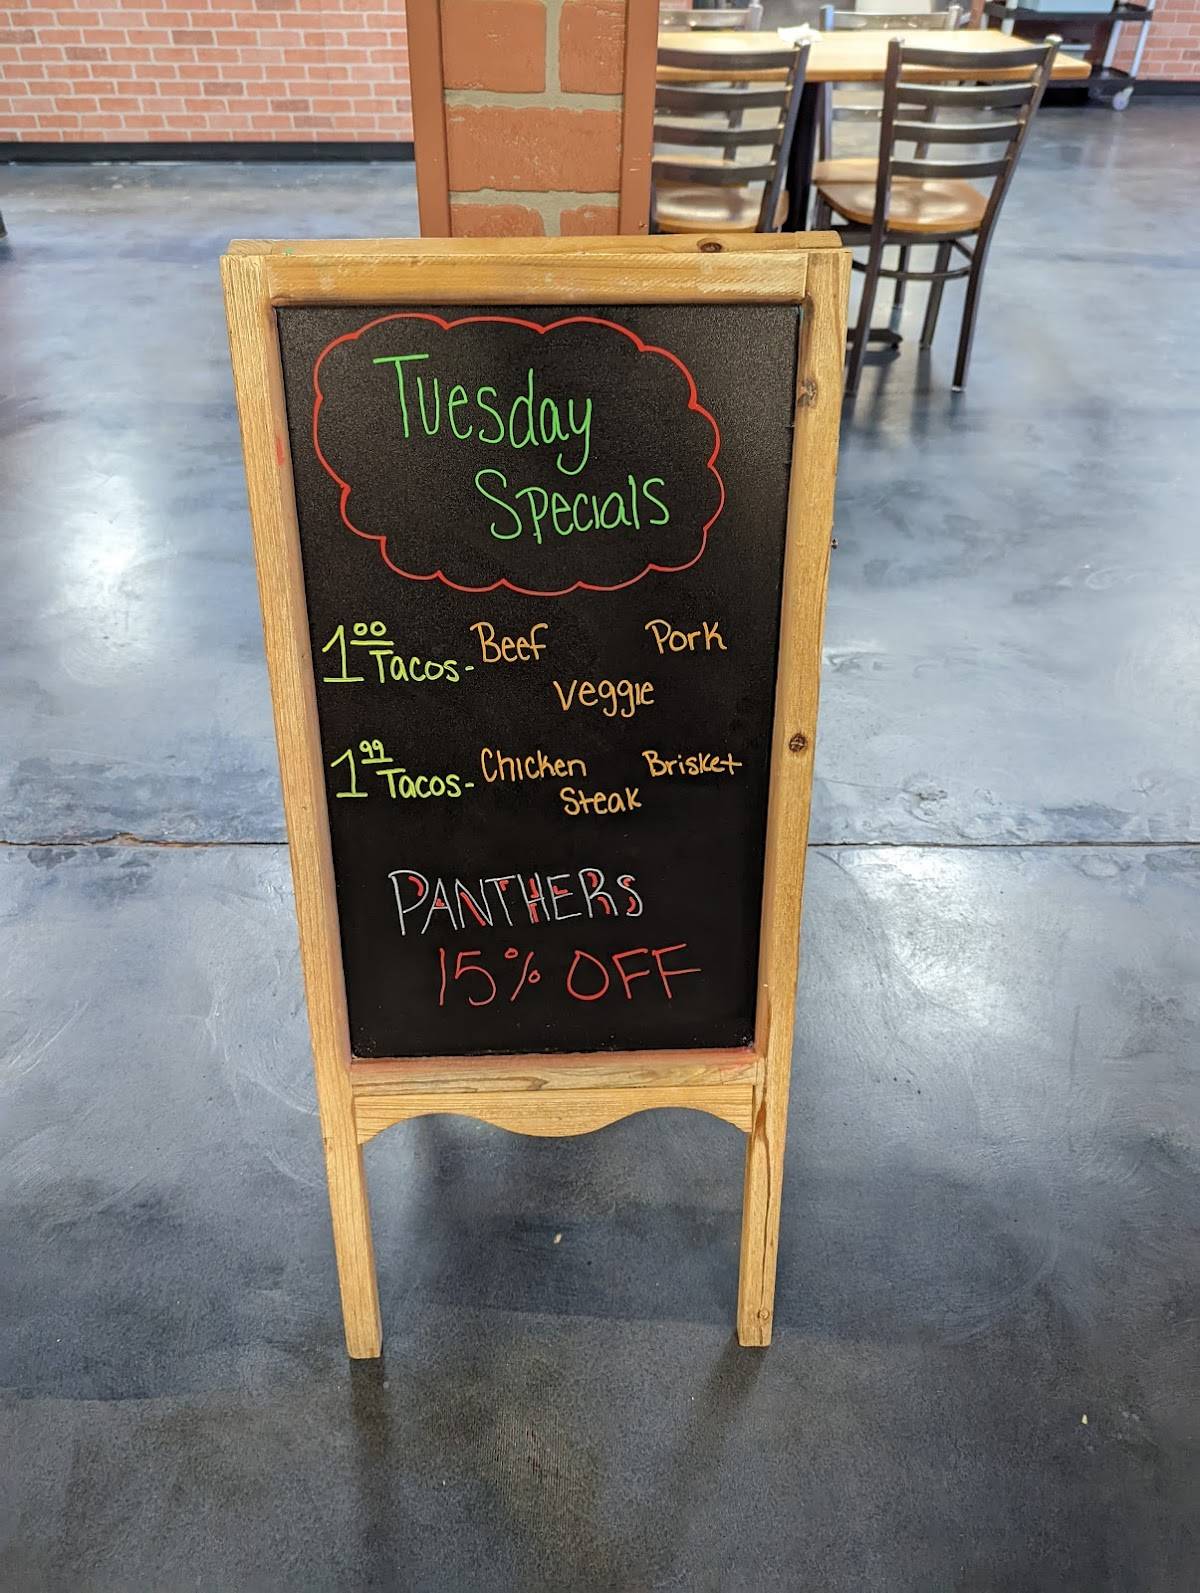 Tuesday
Specials
1.00 Tacos- Beef Pork
Veggie
1.99 Tacos- Chicken Brisket
Steak
PANTHERS
15% OFF